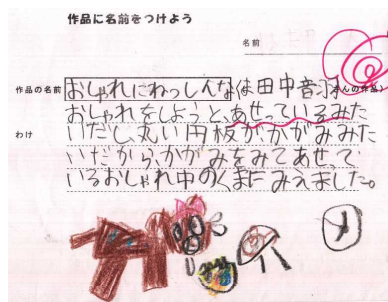 作品に名前をつけよう
名前
作品の名前 おしゃれにねっしんな(休田中音羽さんの作品)
おしゃれをしようと、あせっているみた
わけ いだし、丸い円板がかがみみた
いだから、かがみをみてあせって
いるおしゃれ中のくまにみえました。